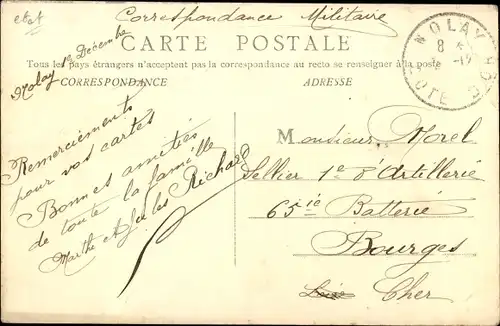 etat
Correspondance Militaire
CARTE POSTALE
Tous les pays étrangers n'acceptent pas la correspondance au recto se renseigner à la poste
CORRESPONDANCE
ADRESSE
NOLAY
8
CÔTE D'OR
Nolay 1e Décembre
Remerciements
pour vos cartes
Bonnes amitiés
de toute la famille
Marthe et Jules Richard
M
Monsieur Morel
Sellier 1e d'Artillerie
65ie Batterie
Bourges
Cher